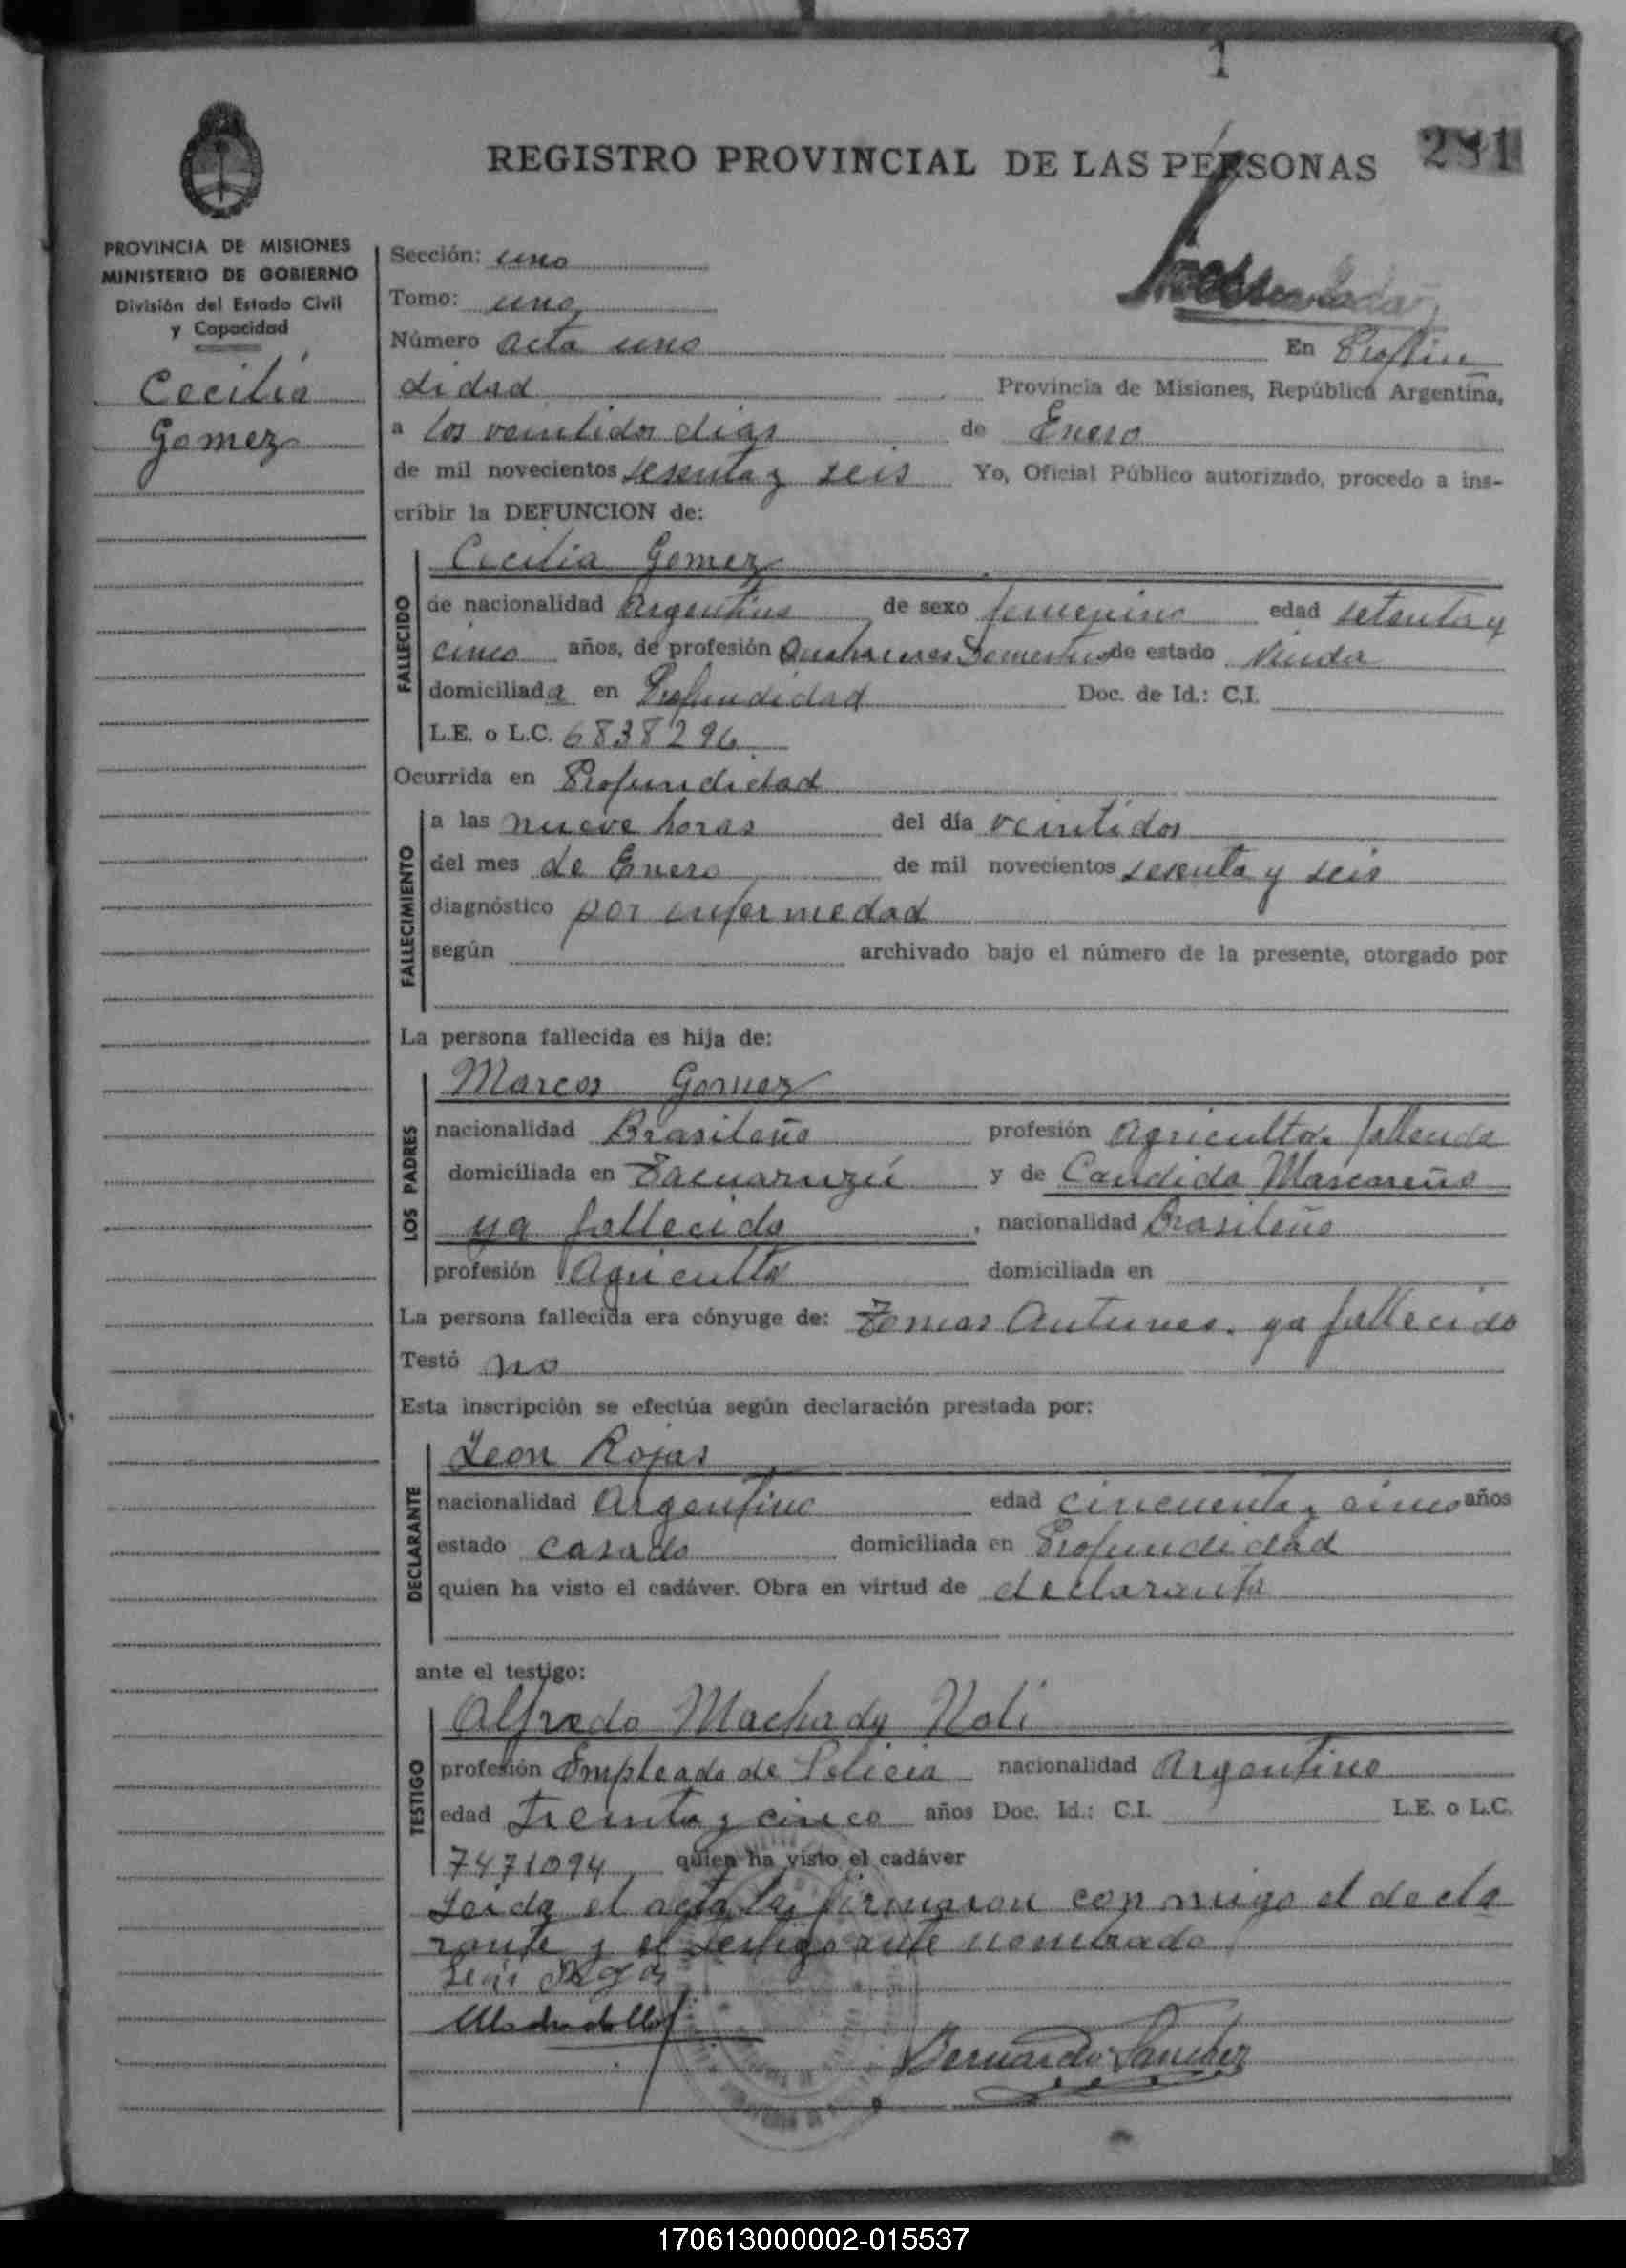 1
REGISTRO PROVINCIAL DE LAS PERSONAS
PROVINCIA DE MISIONES
MINISTERIO DE GOBIERNO
División del Estado Civil
y Capacidad
Cecilia
Gomez
Sección: uno
Tomo: uno
Número acta uno En Profun
didad Provincia de Misiones, República Argentina,
a los veintidos dias de Enero
de mil novecientos sesenta y seis Yo, Oficial Público autorizado, procedo a ins-
cribir la DEFUNCION de:
FALLECIDO
Cecilia Gomez
de nacionalidad Argentina de sexo femenino edad setenta y
cinco años, de profesión Quehaceres Domesticos de estado Viuda
domiciliada en Profundidad Doc. de Id.: C.I.
L.E. o L.C. 6838296
Ocurrida en Profundidad
FALLECIMIENTO
a las nueve horas del día veintidos
del mes de Enero de mil novecientos sesenta y seis
diagnóstico por enfermedad
según archivado bajo el número de la presente, otorgado por
La persona fallecida es hija de:
LOS PADRES
Marcos Gomez
nacionalidad Brasileño profesión Agricultor
domiciliada en Tacuaruzú y de Candida Mascareño
ya fallecida, nacionalidad Brasileño
profesión Agriculto domiciliada en
La persona fallecida era cónyuge de: Tomas Antunes. ya fallecido
Testó no
Esta inscripción se efectúa según declaración prestada por:
DECLARANTE
Leon Rojas
nacionalidad Argentino edad cincuenta y cinco años
estado casado domiciliada en Profundidad
quien ha visto el cadáver. Obra en virtud de declarante
ante el testigo:
TESTIGO
Alfredo Machado Noli
profesión Empleado de Policia nacionalidad Argentino
edad Treinta y cinco años Doc. Id.: C.I. L.E. o L.C.
7471094 quien ha visto el cadáver
Leida el acta la firmaron con migo el decla
rante y el testigo ante nombrado
Bernardo Sanchez
170613000002-015537